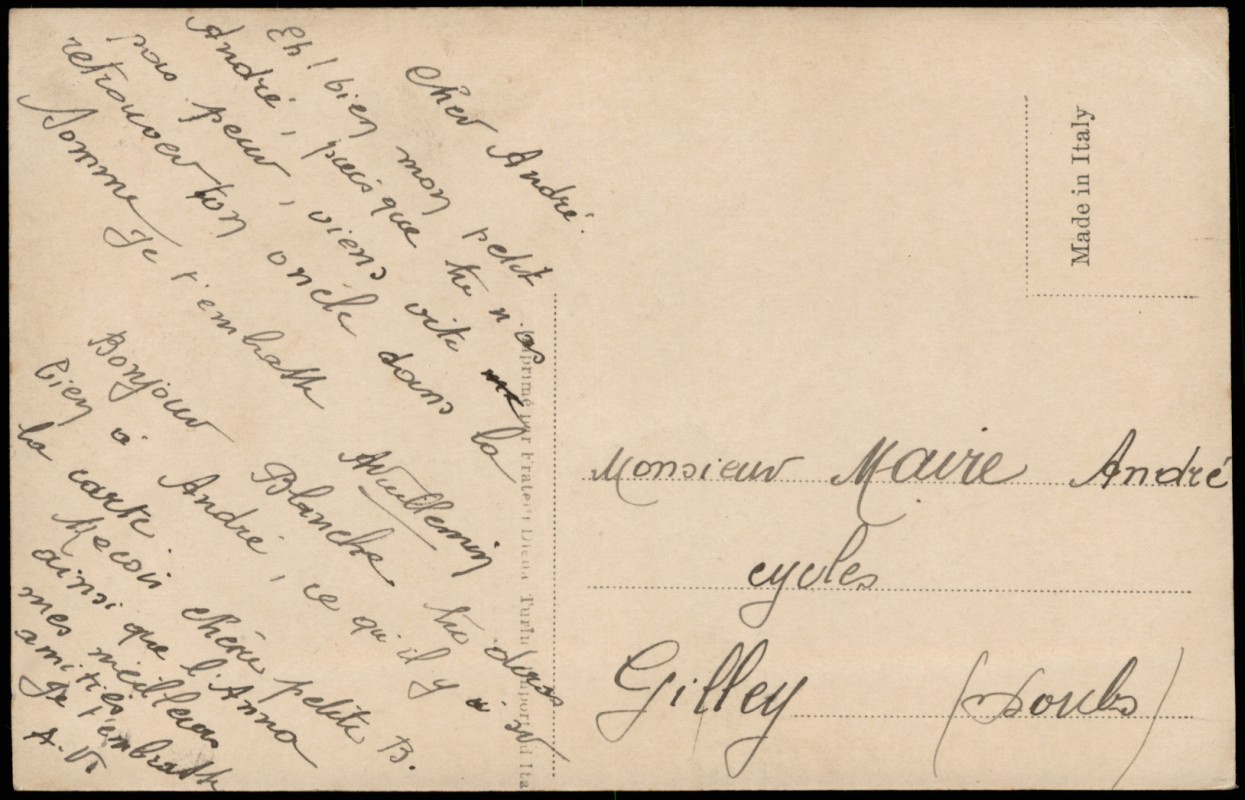 Cher André.
Eh! bien mon petit
André, puisque tu n'as
pas peur, viens vite
retrouver ton oncle dans la
Somme
Je t'embrasse
AVuillemin
Bonjour Blanche. tu diras
bien à André, ce qu'il y a sur
la carte.
Reçois chère petite B.
ainsi que l'Anna
mes meilleurs
amitiés
Je t'embrasse
A-Vt
Monsieur Maire André
cycles
Gilley (Doubs)
Made in Italy
Imprimé par Fratelli Diena Turin